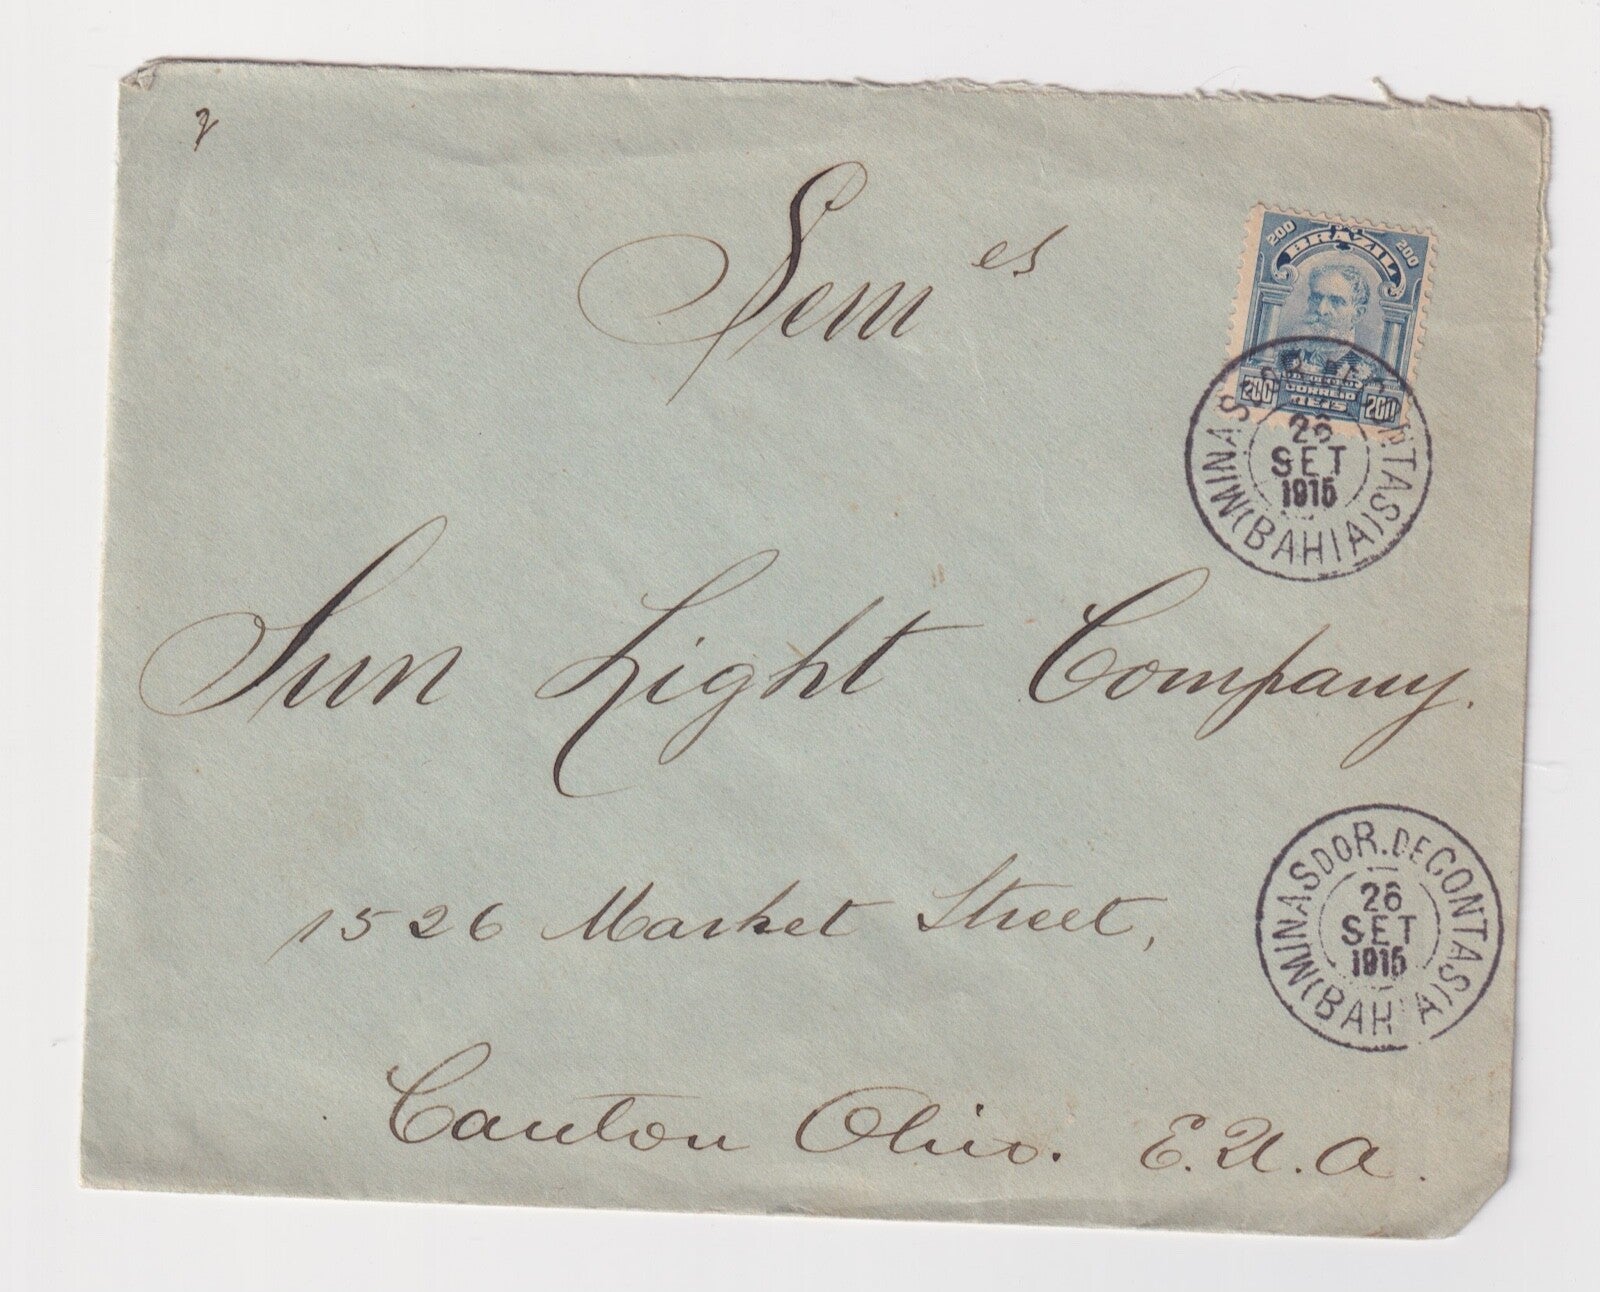 200 BRAZIL 200
CORREIO
200 REIS 200
MINAS DO R. DE CONTAS (BAHIA)
26
SET
1915
Sun Light Company.
1526 Market Street,
Canton Ohio. E.U.A.
MINAS DO R. DE CONTAS (BAHIA)
26
SET
1915